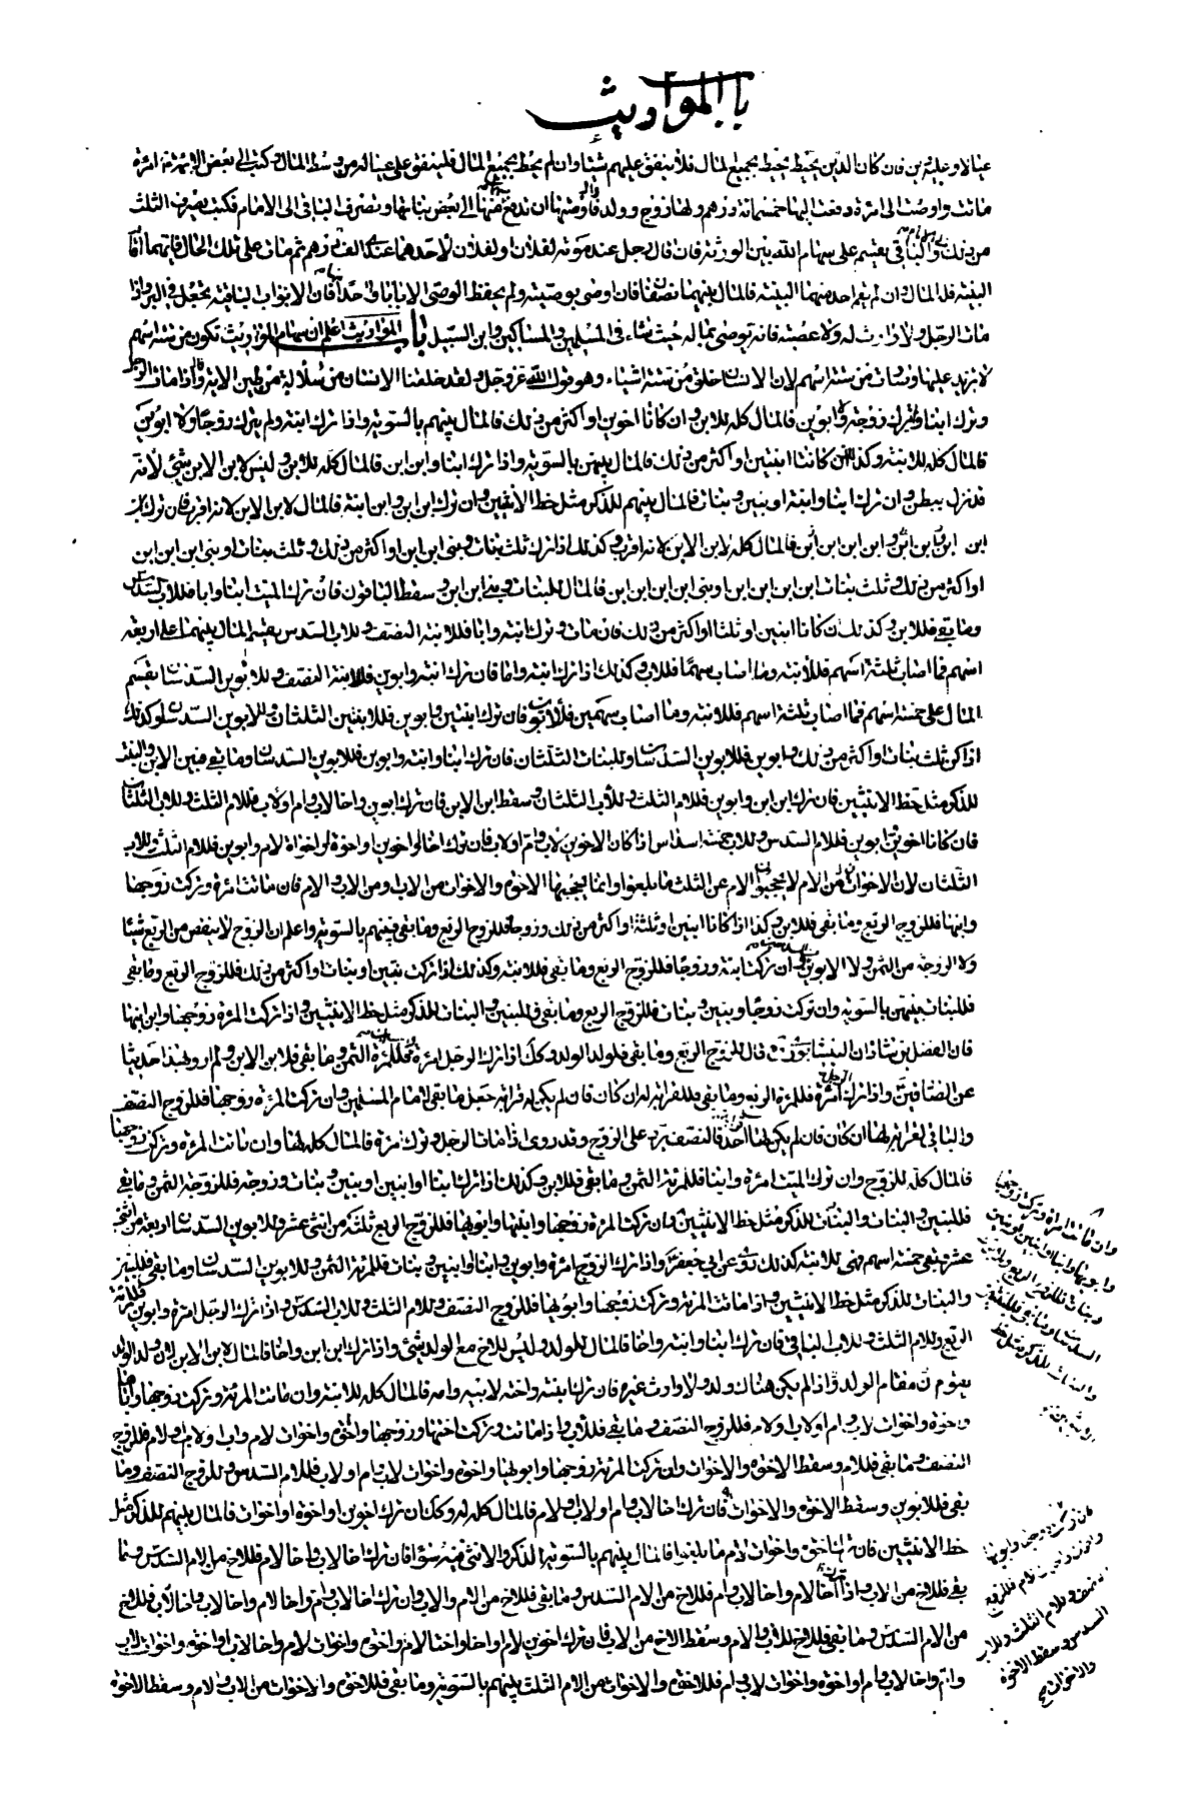 باب المواريث
عياله وعليه دين فان كان الدين يحيط بجميع المال فلا ينفق عليهم شيئا وان لم يحط بجميع المال فلينفق على عياله من وسط المال وكتب الى بعض الائمة امرئة
ماتت واوصت الى امرئة دفعت اليها خمسمائة درهم ولها زوج وولد فاوصتها ان تدفع منها الى بعض بناتها وتصرف الباقي الى الامام فكتب يصرف الثلث
من ذلك والباقي يقسم على سهام الله بين الورثة فان قال رجل عند موته لفلان او لفلان لاحدهما عندي الف درهم ثم مات على تلك الحال فايهما اقام
البينة فله المال وان لم يقم احد منهما البينة فالمال بينهما نصفان فان اوصى بوصيته ولم يحفظ الوصي الا بابا واحدا فان الابواب الباقية يجعل في البر واذا
مات الرجل ولا وارث له ولا عصبة فانه يوصى بماله حيث شاء في المسلمين والمساكين وابن السبيل باب المواريث اعلم ان سهام المواريث تكون من ستة اسهم
لا يزيد عليها وصارت من ستة اسهم لان الانسان خلق من ستة اشياء وهو قول الله عز وجل ولقد خلقنا الانسان من سلالة من طين الاية واذا مات الرجل
وترك ابنا ولم يترك زوجة ولا ابوين فالمال كله للابن وان كانا اخوين او اكثر من ذلك فالمال بينهم بالسوية واذا ترك ابنة ولم يترك زوجا ولا ابوين
فالمال كله للابنة وكذلك ان كانتا ابنتين او اكثر من ذلك فالمال بينهن بالسوية واذا ترك ابنا وابن ابن فالمال كله للابن وليس لابن الابن شيء لانه
قد نزل ببطن وان ترك ابنا وابنة او بنين وبنات فالمال بينهم للذكر مثل حظ الانثيين وان ترك ابن ابن وابن ابنة فالمال لابن الابن لانه اقرب فان ترك
ابن ابن وابن ابن ابن ابن فالمال كله لابن الابن لانه اقرب وكذلك اذا ترك ثلث بنات وبني ابن ابن او اكثر من ذلك وثلث بنات او بني ابن ابن ابن
او اكثر من ذلك وثلث بنات ابن ابن ابن ابن او بني ابن ابن ابن ابن فالمال للبنات وبني ابن ابن وسقط الباقون فان ترك الميت ابنا وابا فللاب السدس
وما بقي فللابن وكذلك ان كانا ابنين او ثلثا او اكثر من ذلك فان مات وترك ابنة وابا فللابنة النصف وللاب السدس يقسم المال بينهما على اربعة
اسهم فما اصاب ثلثة اسهم فللابنة وما اصاب سهما فللاب وكذلك اذا ترك ابنة واما فان ترك ابنة وابوين فللابنة النصف وللابوين السدسان يقسم
المال على خمسة اسهم فما اصاب ثلثة اسهم فللابنة وما اصاب سهمين فللابوين فان ترك ابنتين وابوين فللابنتين الثلثان وللابوين السدسان وكذلك
اذا كن ثلث بنات او اكثر من ذلك وابوين فللابوين السدسان وللبنات الثلثان فان ترك ابنا وابنة وابوين فللابوين السدسان وما بقي فبين الابن والبنت
للذكر مثل حظ الانثيين فان ترك ابن ابن وابوين فللام الثلث وللاب الثلثان وسقط ابن الابن فان ترك ابوين واخا لاب وام او لاب فللام الثلث وللاب الثلثان
فان كانا اخوين وابوين فللام السدس وللاب خمسة اسداس اذا كان الاخوين لاب وام او لاب فان ترك اخا او اخوين او اخوة او اخوات لام وابوين فللام الثلث وللاب
الثلثان لان الاخوات من الام لا يحجبون الام عن الثلث ما بلغوا وانما يحجبها الاخوة والاخوات من الاب ومن الاب والام فان ماتت امرئة وتركت زوجها
وابنها فللزوج الربع وما بقى فللابن وكذا اذا كانا ابنين او ثلثة او اكثر من ذلك وزوجا فللزوج الربع وما بقى فبينهم بالسوية واعلم ان الزوج لا ينقص من الربع شيئا
ولا الزوجة من الثمن ولا الابوين وان تركت ابنة وزوجا فللزوج الربع وما بقى فللابنة وكذلك اذا تركت بنتين او بنات او اكثر من ذلك فللزوج الربع وما بقى
فللبنات بينهن بالسوية وان تركت زوجا وبنين وبنات فللزوج الربع وما بقى فللبنين والبنات للذكر مثل حظ الانثيين واذا تركت المرئة زوجها وابن ابنها
فان الفضل بن شاذان النيشابوري قال للزوج الربع وما بقى فلولد الولد وكذلك اذا ترك الرجل امرئة فللمرئة الثمن وما بقى فلابن الابن ولم ارو بهذا حديثا
عن الصادقين واذا ترك الرجل امرئة فللمرئة الربع وما بقى فللقرابة له ان كان فان لم يكن له قرابة جعل ما بقى لامام المسلمين وان تركت المرئة زوجها فللزوج النصف
والباقي لقرابة لها ان كان فان لم يكن لها احد فالنصف يرد على الزوج وقد روى اذا مات الرجل وترك امرئة فالمال كله لها وان ماتت المرئة وتركت زوجها
فالمال كله للزوج وان ترك الميت امرئة وابنا فللمرئة الثمن وما بقى فللابن وكذلك اذا ترك ابنا او ابنين او بنين وبنات وزوجة فللزوجة الثمن وما بقى
فللبنين والبنات للذكر مثل حظ الانثيين فان تركت المرئة زوجها وابنتها وابويها فللزوج الربع ثلثة من اثنى عشر وللابوين السدسان اربعة من اثنى
عشر وبقى خمسة اسهم فهي للابنة كذلك روى عن ابي جعفر واذا ترك الزوج امرئة وابوين وابنا او ابنين وبنات فللمرئة الثمن وللابوين السدسان وما بقى فللبنين
والبنات للذكر مثل حظ الانثيين واذا ماتت المرئة وتركت زوجها وابويها فللزوج النصف وللام الثلث وللاب السدس واذا ترك الرجل امرئة وابوين فللمرئة
الربع وللام الثلث وللاب الباقي فان ترك ابنا وابنة واخا فالمال للولد وليس للاخ مع الولد شيئ واذا ترك ابن ابن واخا فالمال لابن الابن لان ولد الولد
يقوم مقام الولد اذا لم يكن هناك ولد ولا وارث غيره فان ترك ابنة واخته لابيه وامه فالمال كله للابنة وان ماتت المرئة وتركت زوجها واباها
واخوة واخوات لاب وام او لاب او لام فللزوج النصف وما بقى فللاب واذا ماتت وتركت اختها وزوجها واخوة واخوات لام واب او لاب او لام فللزوج
النصف وما بقى فللام وسقط الاخوة والاخوات وان تركت المرئة زوجها وابويها واخوة واخوات لاب وام او لاب فللام السدس وللزوج النصف وما
بقى فللابوين وسقط الاخوة والاخوات فان ترك اخا لاب وام او لاب او لام فالمال كله له وكذا ان ترك اخوين او اخوة او اخوات فالمال بينهم للذكر مثل
حظ الانثيين فان ترك اخوة واخوات لام ما بلغوا فالمال بينهم بالسوية الذكر والانثى فيه سواء فان ترك اخا لاب واخا لام فللاخ من الام السدس وما
بقى فللاخ من الاب واذا ترك اخا لام واخا لاب وام فللاخ من الام السدس وما بقى فللاخ من الام والاب وان ترك اخا لاب وام واخا لام واخا لاب فللاخ
من الام السدس وما بقى فللاخ للاب والام وسقط الاخ من الاب فان ترك اخوين لام او اخا واختا لام واخوة واخوات لام واخا لاب واخوة واخوات لاب
وام واخا لاب وام او اخوة واخوات لاب وام فللاخوة والاخوات من الام الثلث بينهم بالسوية وما بقى فللاخوة والاخوات من الاب والام وسقط الاخوة
وان ماتت امرئة وتركت زوجها
وابويها وابنا او ابنين او بنين
وبنات فللزوج الربع وللابوين
السدسان وما بقى فللبنين
والبنات للذكر مثل حظ
الانثيين
فان تركت زوجها وابويها
واخوة واخوات لام فللزوج
النصف وللام الثلث وللاب
السدس وسقط الاخوة
والاخوات